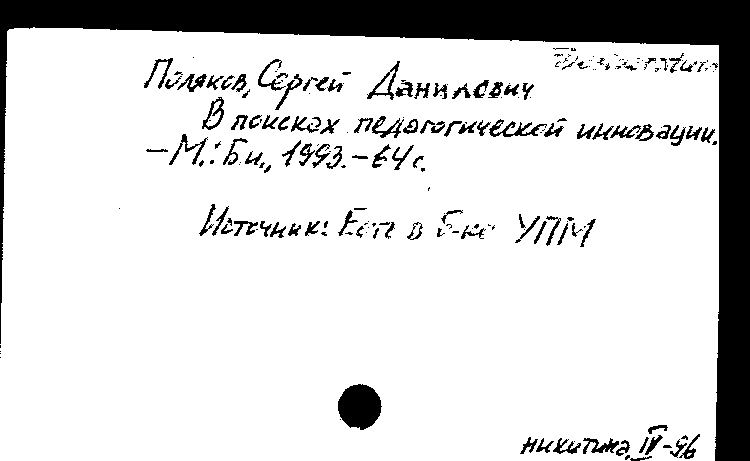 Desiderata
Поляков, Сергей Данилович
В поисках педагогической инновации.
–М.: Би., 1993.–64 с.
Источник: Есть в б-ке УПМ
никитина, IV-96